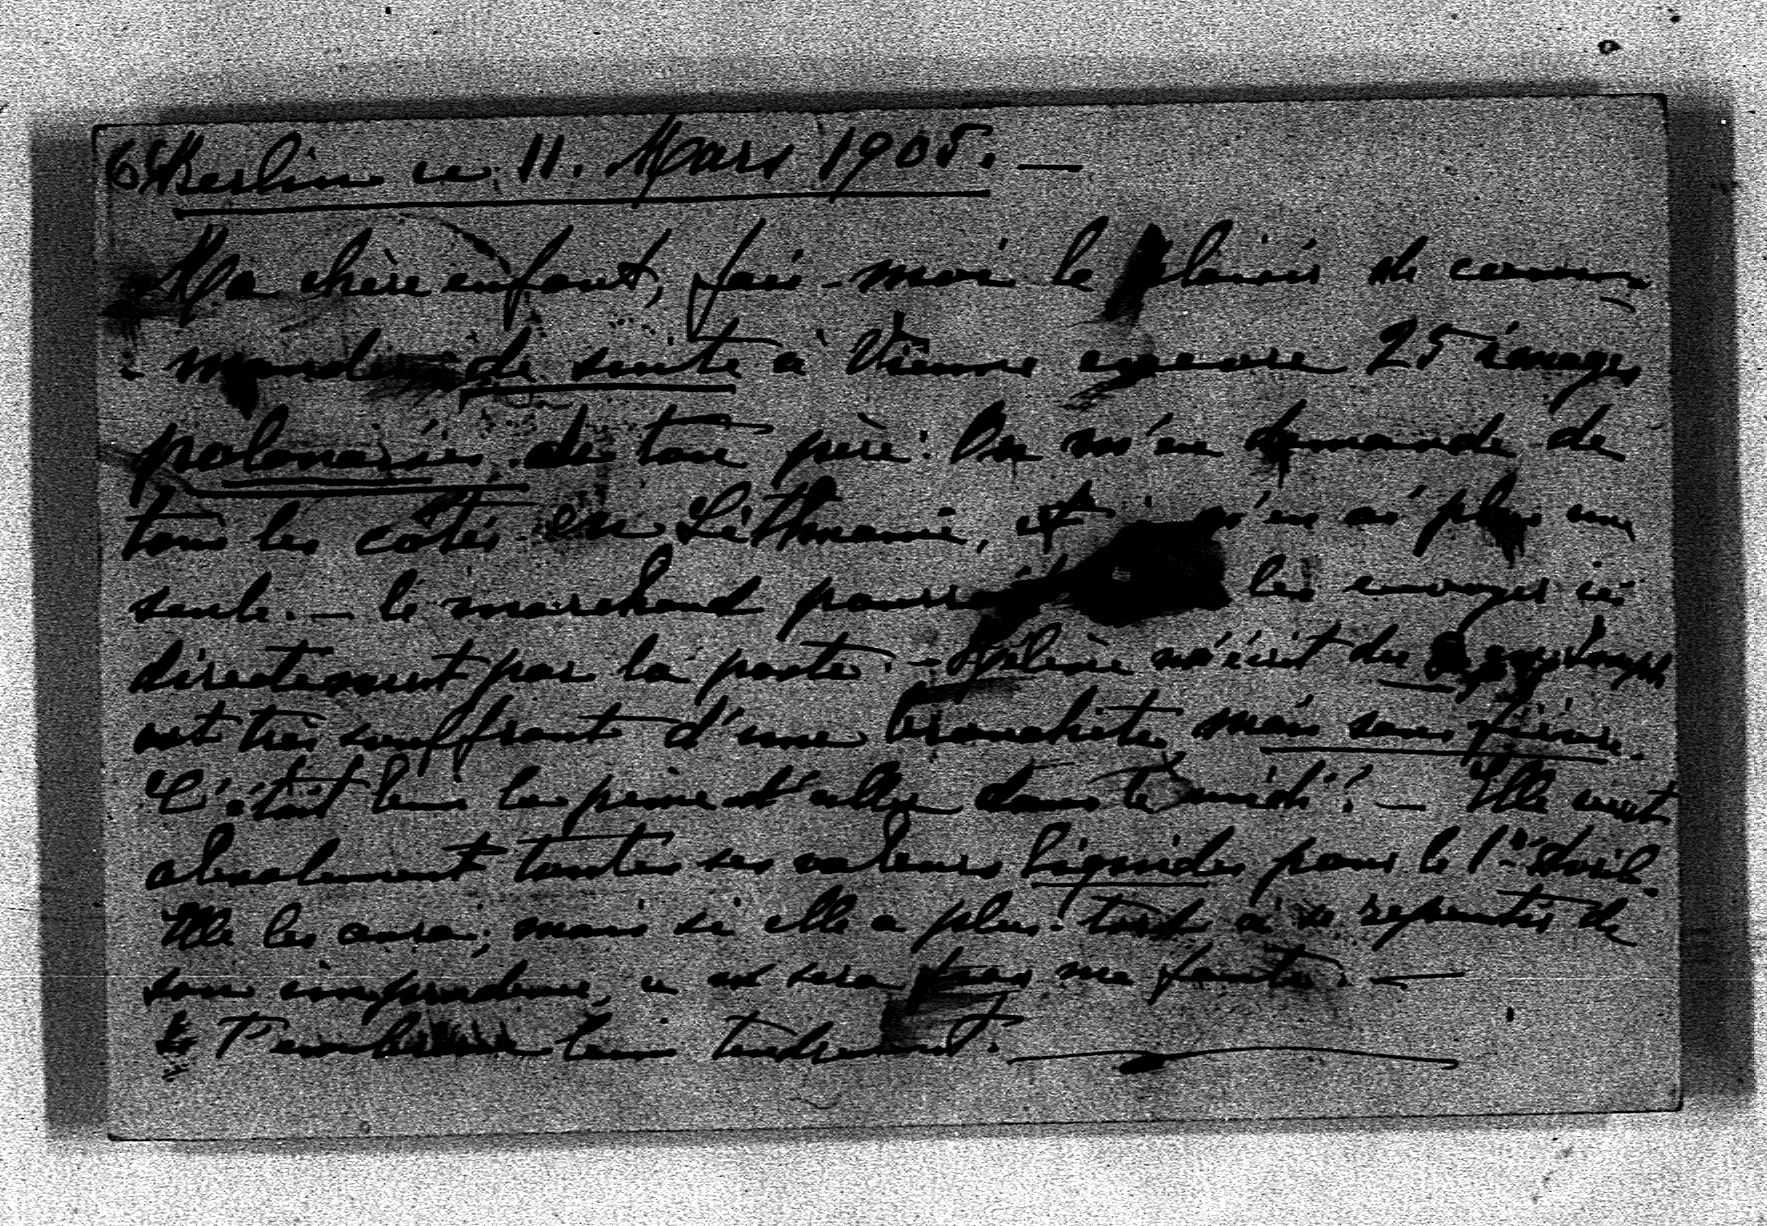 Berlin ce 11. Mars 1905. —
Ma chère enfant, fais-moi le plaisir de com-
mander de suite à Vienne encore 25 images
polonaises de ton père. On m'en demande de
tous les côtés en Lithuanie, et n'en ai plus une
seule. — le marchand pourrait les envoyer ici
directement par la poste. — Hélène m'écrit des
est très souffrant d'une bronchite, mais sans fièvre.
C'était bien la peine d'aller dans le midi! — Elle veut
absolument toutes ses valeurs liquides pour le 1er Avril.
Elle les aura; mais si elle a plus tard à se repentir de
son imprudence, ce ne sera pas ma faute. —
Je T'embrasse bien tendrement.